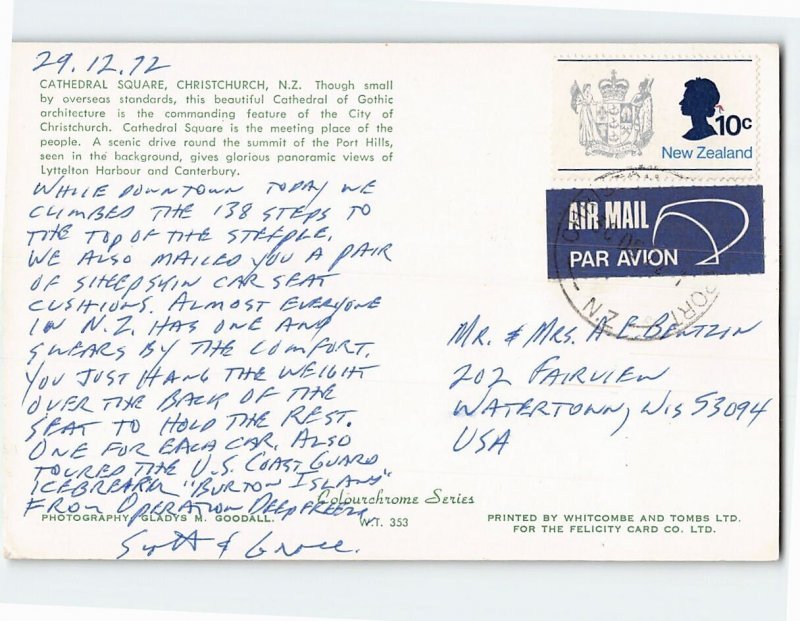 29.12.72
CATHEDRAL SQUARE, CHRISTCHURCH, N.Z. Though small
by overseas standards, this beautiful Cathedral of Gothic
architecture is the commanding feature of the City of
Christchurch. Cathedral Square is the meeting place of the
people. A scenic drive round the summit of the Port Hills,
seen in the background, gives glorious panoramic views of
Lyttelton Harbour and Canterbury.
WHILE DOWNTOWN TODAY WE
CLIMBED THE 138 STEPS TO
THE TOP OF THE STEEPLE.
WE ALSO MAILED YOU A PAIR
OF SHEEPSKIN CAR SEAT
CUSHIONS. ALMOST EVERYONE
IN N.Z. HAS ONE AND
SWEARS BY THE COMFORT.
YOU JUST HANG THE WEIGHT
OVER THE BACK OF THE
SEAT TO HOLD THE REST.
ONE FOR EACH CAR. ALSO
TOURED THE U.S. COAST GUARD
ICEBREAKER "BURTON ISLAND"
FROM OPERATION DEEPFREEZE.
Scott & Grace.
10c
New Zealand
AIR MAIL
PAR AVION
N.Z.
MR. & MRS. A F. BENTZIN
202 FAIRVIEW
WATERTOWN, WIS 53094
USA
Colourchrome Series
PHOTOGRAPHY GLADYS M. GOODALL.
W.T. 353
PRINTED BY WHITCOMBE AND TOMBS LTD.
FOR THE FELICITY CARD CO. LTD.